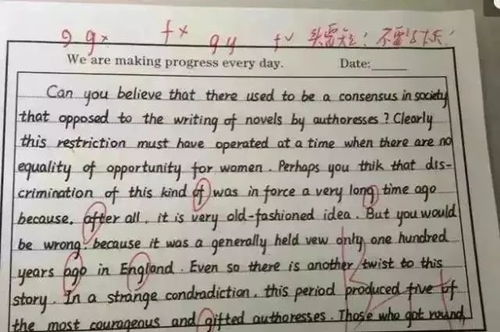 g g× f× g y f✓
We are making progress every day. Date:
Can you believe that there used to be a consensus in society
that opposed to the writing of novels by authoresses? Clearly
this restriction must have operated at a time when there are no
equality of opportunity for women. Perhaps you thik that dis-
crimination of this kind of was in force a very long time ago
because, after all, it is very old-fashioned idea. But you would
be wrong, because it was a generally held vew only one hundred
years ago in England. Even so there is another twist to this
story. In a strange condradiction, this period produced five of
the most courageous and gifted authoresses. Those who got round